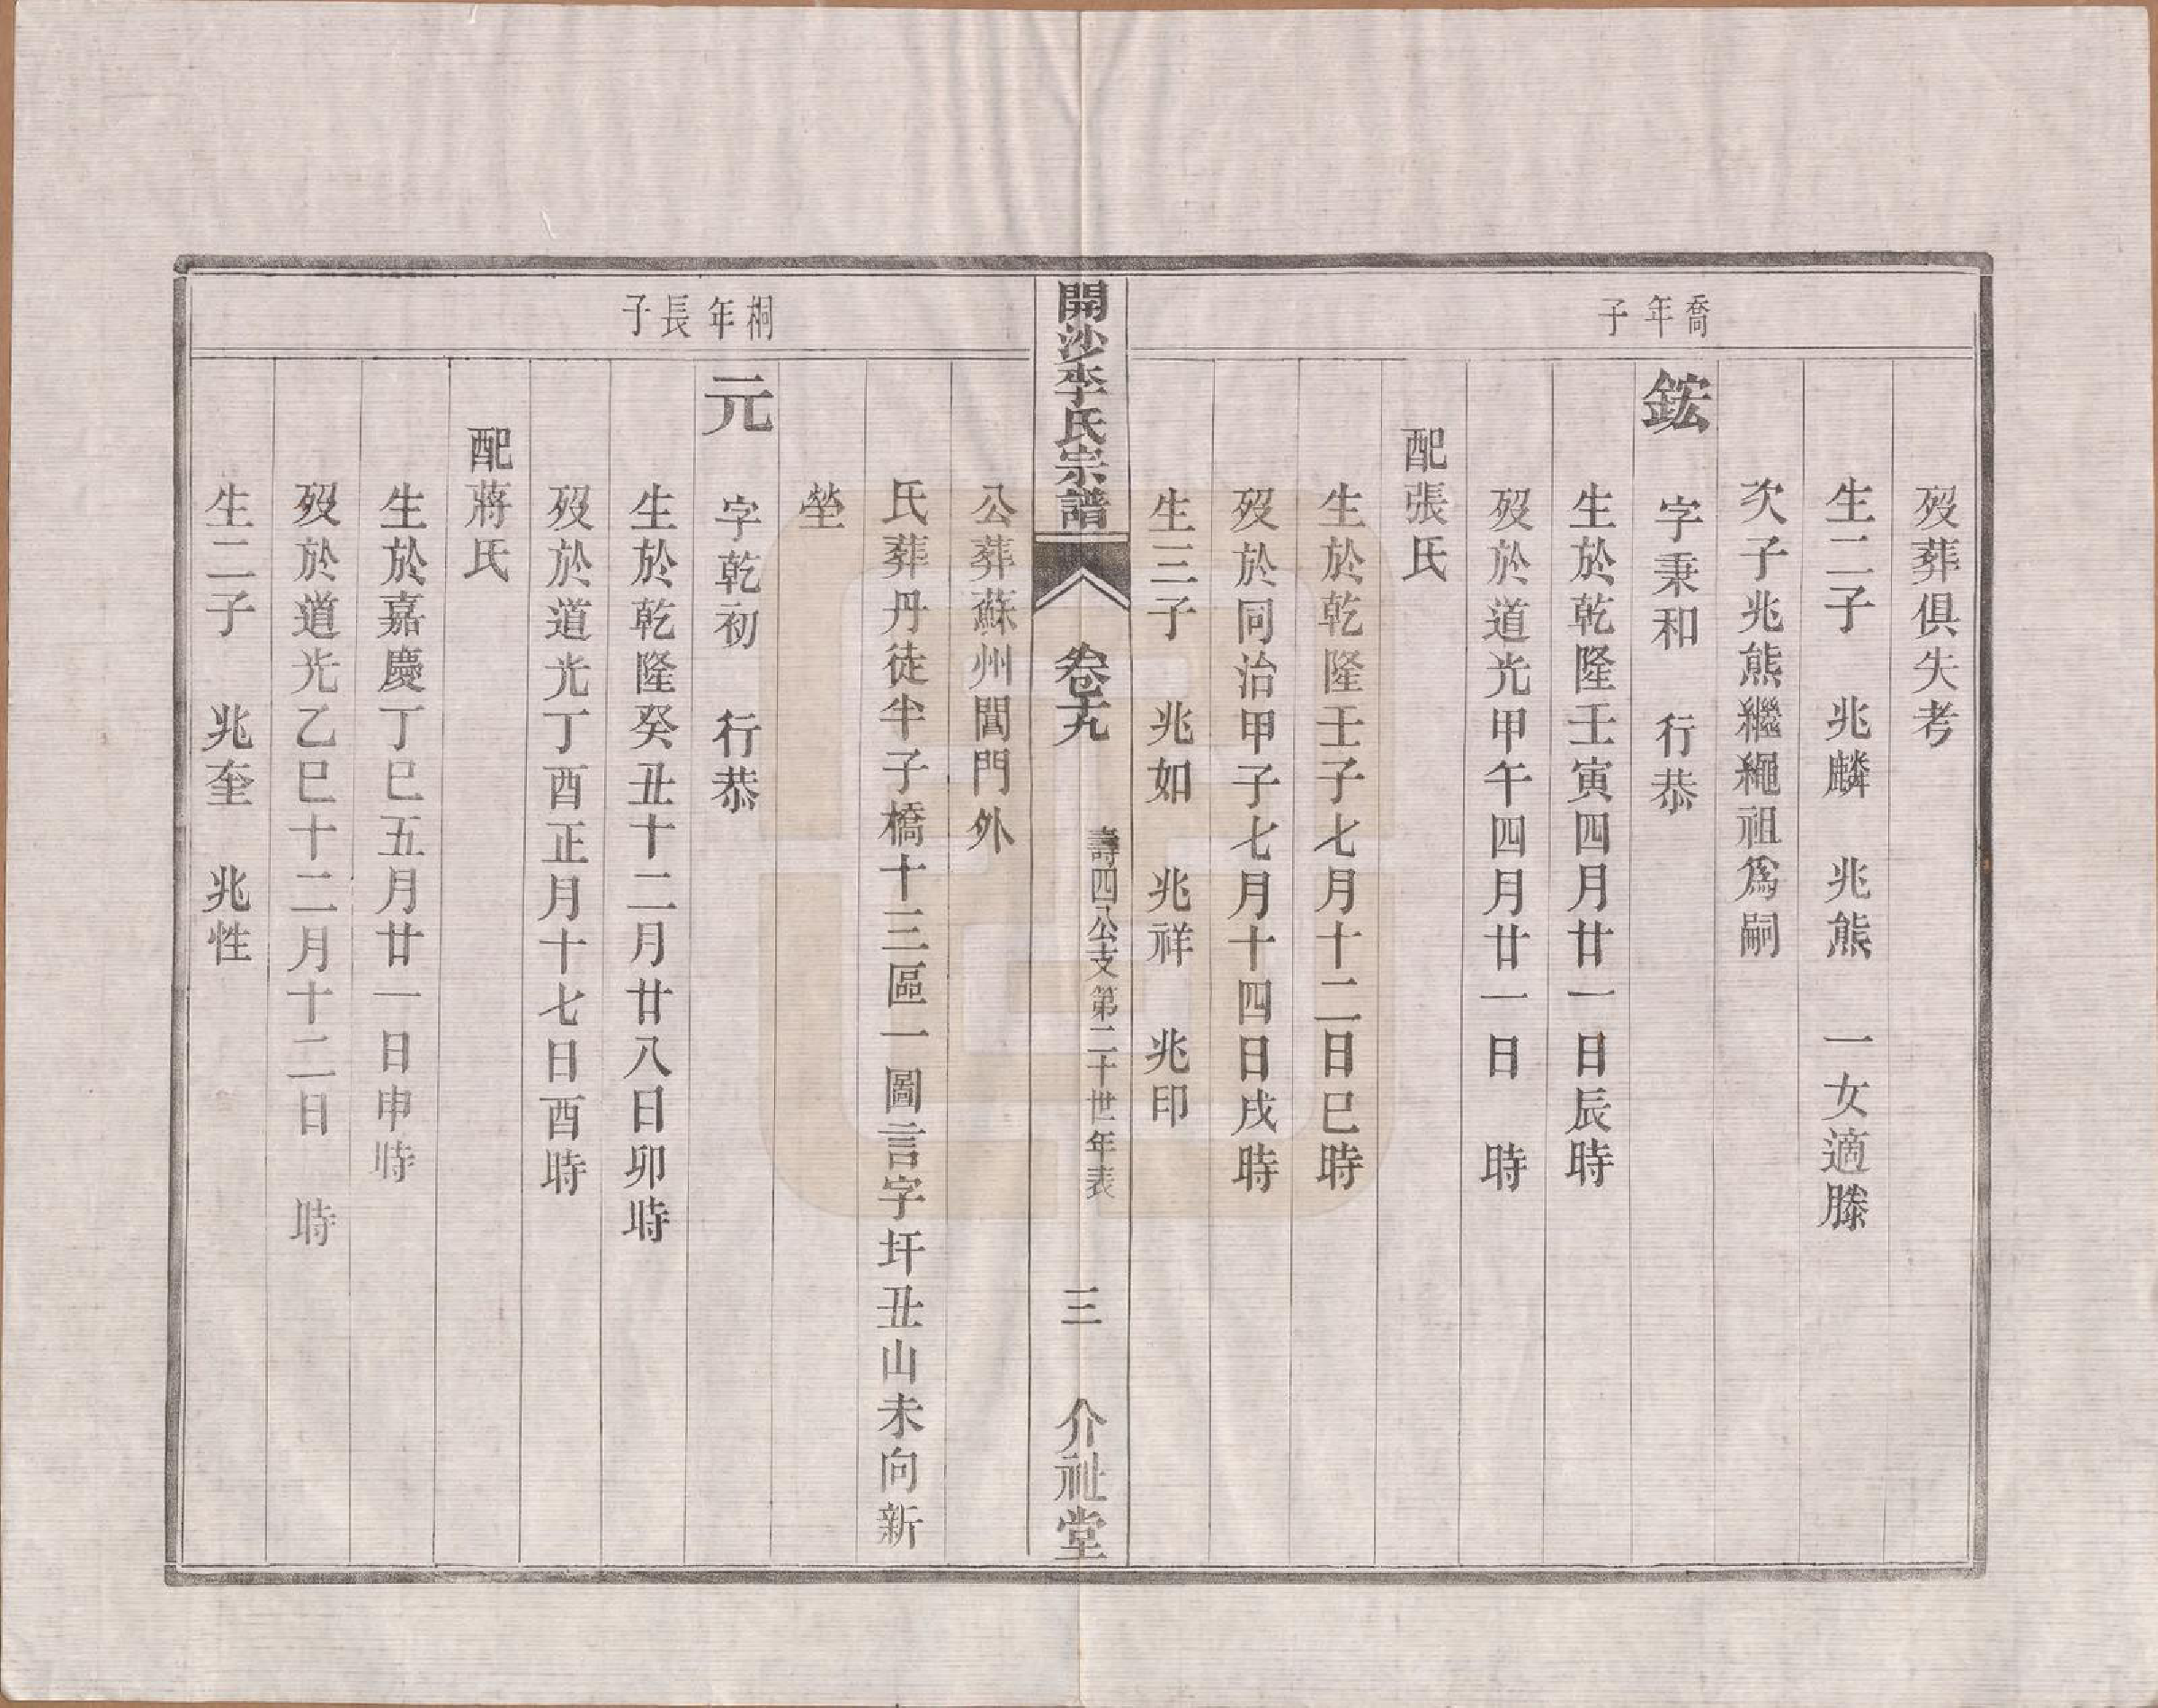 歿葬俱失考
生二子　兆麟　兆熊　一女適滕
次子兆熊繼繩祖爲嗣
喬年子
鋐　字秉和　行恭
生於乾隆壬寅四月廿一日辰時
歿於道光甲午四月廿一日　時
配張氏
生於乾隆壬子七月十二日巳時
歿於同治甲子七月十四日戌時
生三子　兆如　兆祥　兆印
開沙李氏宗譜　卷十九　壽四公支第二十世年表　三　介祉堂
公葬蘇州閶門外
氏葬丹徒半子橋十三區一圖言字圩丑山未向新
塋
桐年長子
元　字乾初　行恭
生於乾隆癸丑十二月廿八日卯時
歿於道光丁酉正月十七日酉時
配蔣氏
生於嘉慶丁巳五月廿一日申時
歿於道光乙巳十二月十二日　時
生二子　兆奎　兆性